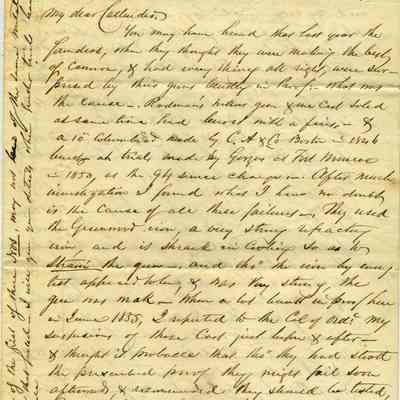 My dear Callender,
You may have heard that last year the
founders, when they thought they were making the best
of Cannon, & had every thing all right, were sur-
prised by their guns bursting in Proof. What was
the cause — Rodman's hollow gun & one Cast Solid
at same time had burst with a few, — &
a 10 in Columbiad made by C. A & Co Boston in 1846
burst at trials made by Gorgas at Fort Monroe
in 1850, at the 9th service charge. After much
investigation I found what I have no doubt
is the cause of all these failures. They used
the Greenwood iron, a very strong refractory
iron, and it shrank in cooling so as to
strain the gun — and tho' the iron by every
test appeared to be, & was very strong, the
gun was weak — When a lot burst in proof here
in June 1855, I reported to the Col of Ord. my
suspicions of those Cast just before & after —
& thought it probable that tho' they had stood
the prescribed proof they might fail soon
afterwards, & recommended they should be tested,
of the first of these 1858, may not of the
that place — I will give you details when further trials have